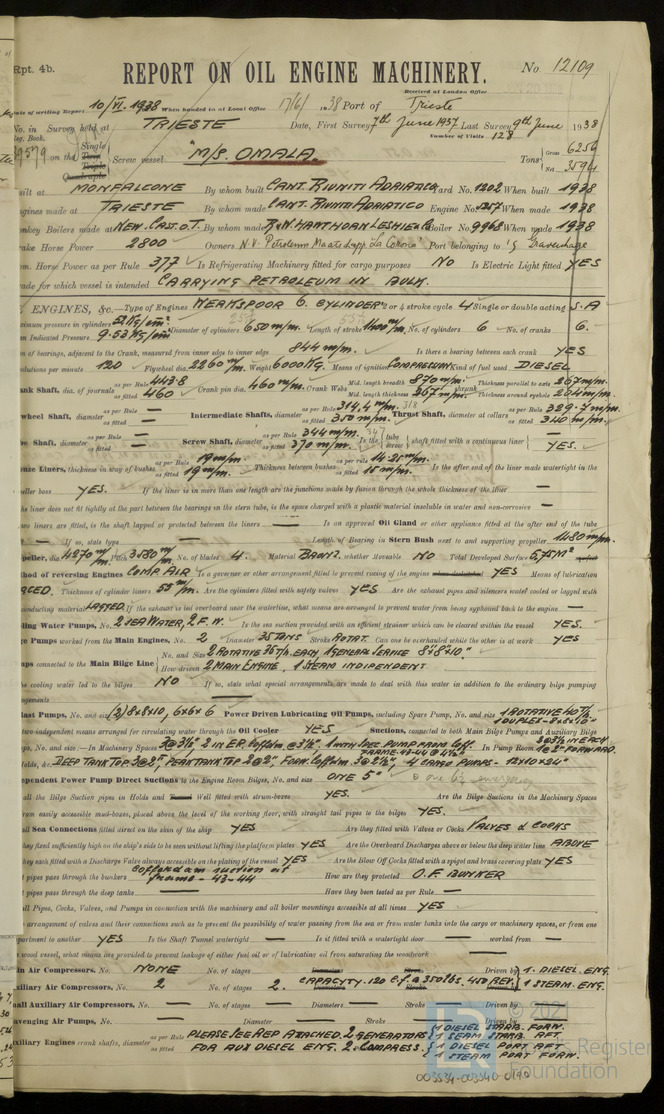 Rpt. 4b.
REPORT ON OIL ENGINE MACHINERY. No. 12109
Received at London Office
Date of writing Report 10/VI. 1938 When handed in at Local Office 17/6/ 1938 Port of Trieste
No. in Survey held at TRIESTE Date, First Survey 7th June 1937 Last Survey 9th June 1938
Reg. Book. Number of Visits 128
on the Single Screw vessel "M/S. OMALA. Tons Gross 6256
Net 3594
Built at MONFALCONE By whom built CANT. RIUNITI ADRIATICO Yard No. 1202 When built 1938
Engines made at TRIESTE By whom made CANT. RIUNITI ADRIATICO Engine No. When made 1938
Donkey Boilers made at NEW. CAST. o. T. By whom made R & N. HAWTHORN LESLIE & Co Boiler No. 9968 When made 1938
Brake Horse Power 2800 Owners N.V. Petroleum Maatschapp. La Corona Port belonging to 's Gravenhage
Nom. Horse Power as per Rule 377 Is Refrigerating Machinery fitted for cargo purposes NO Is Electric Light fitted YES
Trade for which vessel is intended CARRYING PETROLEUM IN BULK.
ENGINES, &c. Type of Engines WERKSPOOR 6 CYLINDER 2 or 4 stroke cycle 4 Single or double acting S.A
Maximum pressure in cylinders Diameter of cylinders 650 m/m. Length of stroke 1400 m/m. No. of cylinders 6 No. of cranks 6.
Mean Indicated Pressure 9.53 Kg/cm²
of bearings, adjacent to the Crank, measured from inner edge to inner edge 844 m/m. Is there a bearing between each crank YES
Revolutions per minute 120 Flywheel dia. 2260 m/m. Weight 6000 KG. Means of ignition COMPRESSION Kind of fuel used DIESEL
Crank Shaft, dia. of journals as per Rule 443.8 as fitted 460 Crank pin dia. 460 m/m. Crank Webs Mid. length breadth 870 m/m. Thickness parallel to axis 267 m/m.
Mid. length thickness 267 m/m. Thickness around eyehole 204 m/m.
Flywheel Shaft, diameter as per Rule — as fitted — Intermediate Shafts, diameter as per Rule 314,4 m/m. as fitted 350 m/m. Thrust Shaft, diameter at collars as per Rule 329.7 m/m. as fitted 340 m/m.
Tube Shaft, diameter as per Rule — as fitted — Screw Shaft, diameter as per Rule 344 m/m. as fitted 370 m/m. Is the tube screw shaft fitted with a continuous liner YES.
Bronze Liners, thickness in way of bushes as per Rule 19 m/m. as fitted 19 m/m. Thickness between bushes as per rule 14.25 m/m. as fitted 15 m/m. Is the after end of the liner made watertight in the
propeller boss YES. If the liner is in more than one length are the junctions made by fusion through the whole thickness of the liner —
If the liner does not fit tightly at the part between the bearings in the stern tube, is the space charged with a plastic material insoluble in water and non-corrosive —
If two liners are fitted, is the shaft lapped or protected between the liners — Is an approved Oil Gland or other appliance fitted at the after end of the tube
— If so, state type — Length of Bearing in Stern Bush next to and supporting propeller 1480 m/m.
Propeller, dia 4270 m/m. Pitch 3350 m/m. No. of blades 4. Material BRONZ. whether Moveable NO Total Developed Surface 5,75 M²
Method of reversing Engines COMP. AIR Is a governor or other arrangement fitted to prevent racing of the engine YES Means of lubrication
FORCED. Thickness of cylinder liners 55 m/m. Are the cylinders fitted with safety valves YES Are the exhaust pipes and silencers water cooled or lagged with
non-conducting material LAGGED. If the exhaust is led overboard near the waterline, what means are arranged to prevent water from being syphoned back to the engine —
Cooling Water Pumps, No. 2 SEA WATER, 2 F.W. Is the sea suction provided with an efficient strainer which can be cleared within the vessel YES.
Bilge Pumps worked from the Main Engines, No. 2 Diameter 35 TONS Stroke ROTAT. Can one be overhauled while the other is at work YES
Pumps connected to the Main Bilge Line No. and Size 2 ROTATIVE 35 T/h. EACH, 1 GENERAL SERVICE 8"x8"x10"
How driven 2 MAIN ENGINE, 1 STEAM INDIPENDENT
Is the cooling water led to the bilges NO If so, state what special arrangements are made to deal with this water in addition to the ordinary bilge pumping
arrangements —
Ballast Pumps, No. and size (2) 8x8x10, 6x6x6 Power Driven Lubricating Oil Pumps, including Spare Pump, No. and size 1 ROTATIVE 1 DUPLEX - 8x8x10"
Are two independent means arranged for circulating water through the Oil Cooler YES Suctions, connected to both Main Bilge Pumps and Auxiliary
Bilge Pumps, No. and size:—In Machinery Spaces In Pump Room
Holds, &c. DEEP TANK TOP 3@2" PEAK TANK TOP 2@2". 4 CARGO PUMPS - 12x10x24"
Independent Power Pump Direct Suctions to the Engine Room Bilges, No. and size ONE 5" & one 6½ emergency
Are all the Bilge Suction pipes in Holds and Well fitted with strum-boxes YES. Are the Bilge Suctions in the Machinery Spaces
from easily accessible mud-boxes, placed above the level of the working floor, with straight tail pipes to the bilges YES.
Are all Sea Connections fitted direct on the skin of the ship YES Are they fitted with Valves or Cocks VALVES & COCKS
Are they fixed sufficiently high on the ship's side to be seen without lifting the platform plates YES Are the Overboard Discharges above or below the deep water line ABOVE
Are they each fitted with a Discharge Valve always accessible on the plating of the vessel YES Are the Blow Off Cocks fitted with a spigot and brass covering plate YES
What pipes pass through the bunkers Cofferdam suction at frame - 43-44 How are they protected O.F. BUNKER
What pipes pass through the deep tanks — Have they been tested as per Rule —
Are all Pipes, Cocks, Valves, and Pumps in connection with the machinery and all boiler mountings accessible at all times YES
Is the arrangement of valves and their connections such as to prevent the possibility of water passing from the sea or from water tanks into the cargo or machinery spaces, or from one
compartment to another YES Is the Shaft Tunnel watertight — Is it fitted with a watertight door — worked from —
If a wood vessel, what means are provided to prevent leakage of either fuel oil or of lubricating oil from saturating the woodwork —
Main Air Compressors, No. NONE No. of stages — Diameters — Stroke — Driven by 1. DIESEL. ENG.
Auxiliary Air Compressors, No. 2 No. of stages 2. CAPACITY. 120 c.f. @ 350 lbs. 450 REV. Driven by 1 STEAM. ENG.
Small Auxiliary Air Compressors, No. — No. of stages — Diameters — Stroke — Driven by —
Scavenging Air Pumps, No. — Diameter — Stroke — Driven by
Auxiliary Engines crank shafts, diameter as per Rule PLEASE SEE REP ATTACHED. 2 GENERATORS 1 DIESEL STARB. FORW.
1 STEAM STARB. AFT
as fitted FOR AUX DIESEL ENG. 2. COMPRESS. 1 DIESEL PORT AFT
1 STEAM PORT FORW.
© 2021
Lloyd's Register
Foundation
003534-003540-0190